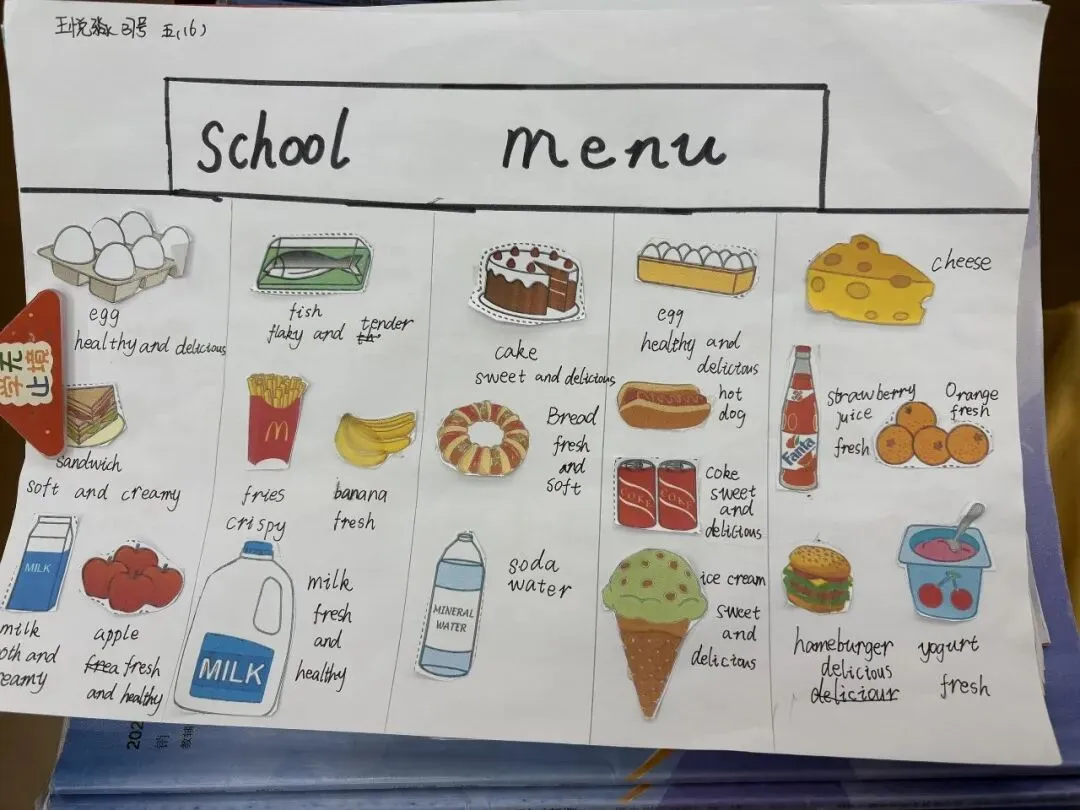 王悦淼 3号 五,(6)
School Menu
egg
healthy and delicious
sandwich
soft and creamy
MILK
milk
oth and
eamy
apple
frea fresh
and healthy
fish
flaky and tender
th
fries
crispy
banana
fresh
MILK
milk
fresh
and
healthy
cake
sweet and delicious
Bread
fresh
and
soft
MINERAL
WATER
soda
water
egg
healthy and
delicious
hot
dog
COKE
COKE
coke
sweet
and
delicious
ice cream
sweet
and
delicious
cheese
Fanta
strawberry
juice
fresh
Orange
fresh
homeburger
delicious
deliciour
yogurt
fresh
学无
止境
202